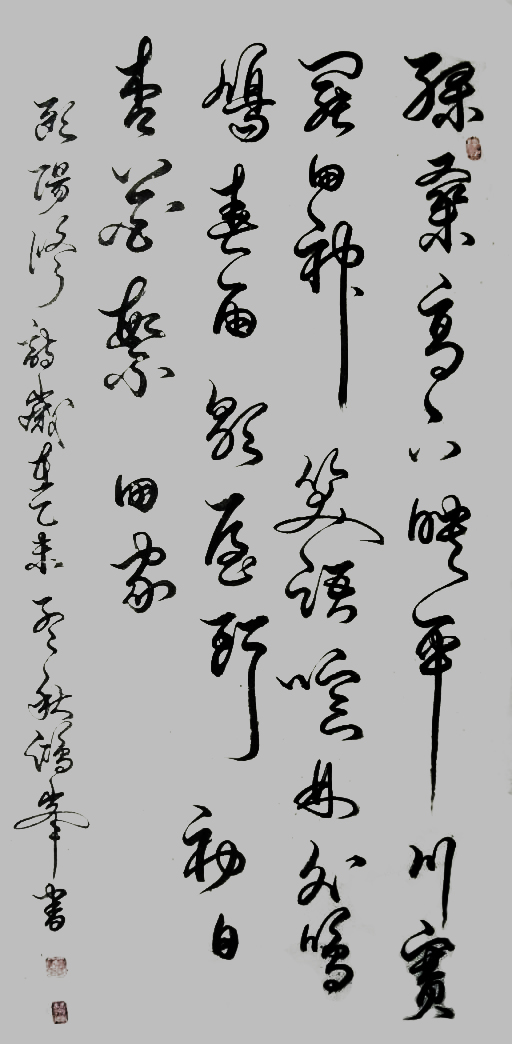 綠桑高下映平川賽
罷田神笑語喧林外鳴
鳩春雨歇屋頭初日
杏花繁 田家
歐陽修詩歲在乙未孟秋鴻峯書